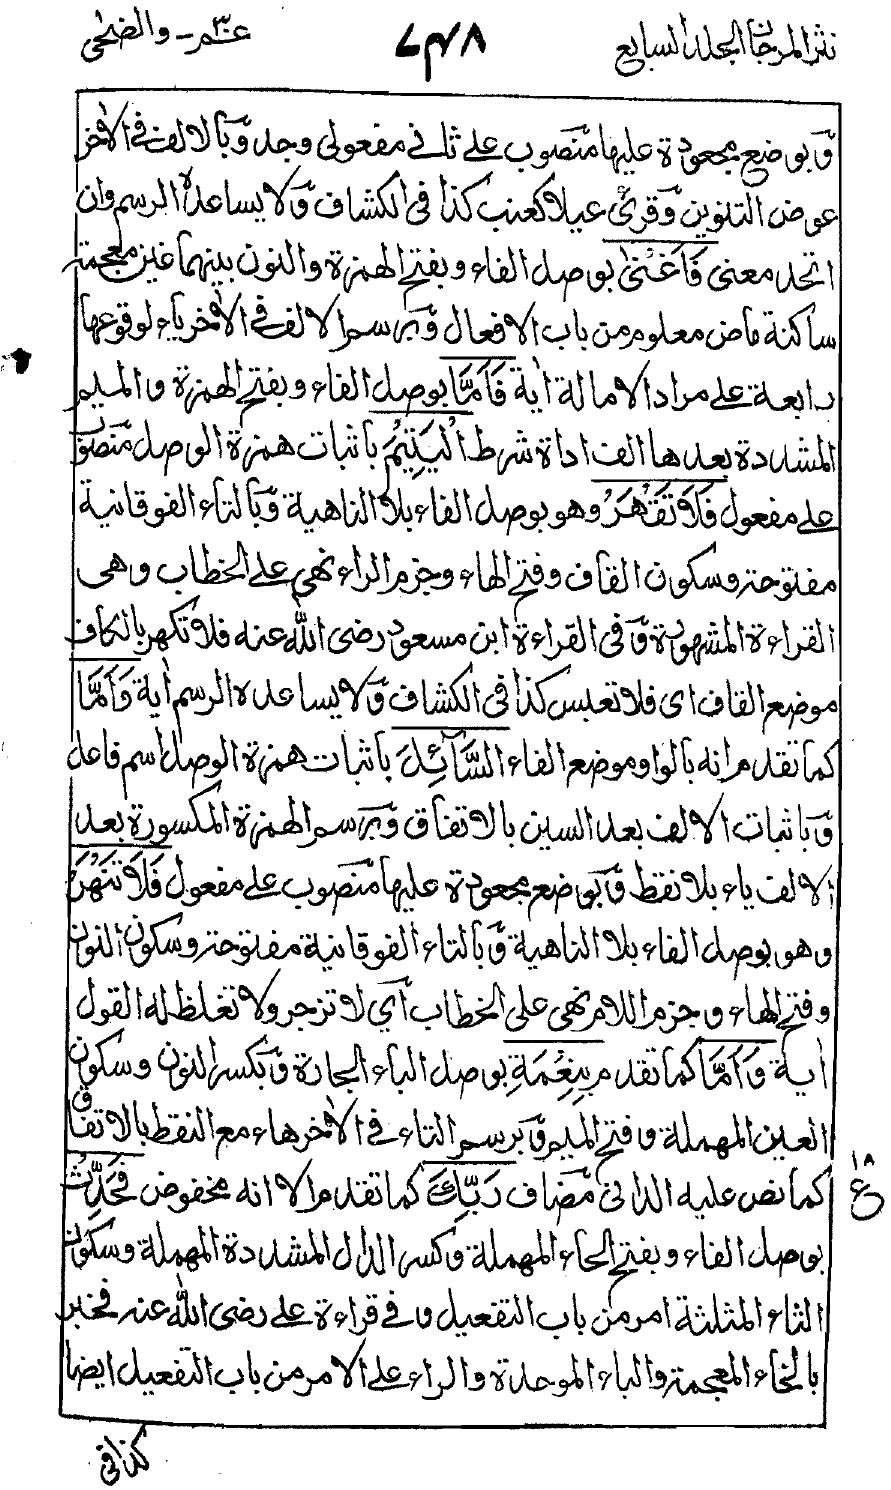 نثر المرجان المجلد السابع
٧٣٨
عٓمّ - والضحى
وٓبوضع مجعودة عليها منصوب على ثاني مفعولي وجد وٓبالالف في الآخر
عوض التنوين وٓقرئ عيلا كعنب كذا في الكشاف وٓلا يساعده الرسم وان
اتحد معنى فَاَغْنٰى بوصل الفاء وبفتح الهمزة والنون بينهما غين معجمة
ساكنة ماض معلوم من باب الافعال وٓبرسم الالف في الآخر ياء لوقوعها
رابعة على مراد الامالة اٰية فَاَمَّا بوصل الفاء وبفتح الهمزة والميم
المشددة بعدها الف اداة شرط الْيَتِيْمَ باثبات همزة الوصل منصوب
على مفعول فَلَا تَقْهَرْ وهو بوصل الفاء بلا الناهية وٓبالتاء الفوقانية
مفتوحة وسكون القاف وفتح الهاء وجزم الراء نهي على الخطاب وهى
القراءة المشهورة وٓفى القراءة ابن مسعود رضى الله عنه فلا تكهر بالكاف
موضع القاف اى فلا تعبس كذا فى الكشاف وٓلا يساعده الرسم اٰية وَاَمَّا
كما تقدم انه بالواو موضع الفاء السَّآئِلَ باثبات همزة الوصل اسم فاعل
وٓباثبات الالف بعد السين بالاتفاق وٓبرسم الهمزة المكسورة بعد
الالف ياء بلا نقط وٓبوضع مجعودة عليها منصوب على مفعول فَلَا تَنْهَرْ
وهو بوصل الفاء بلا الناهية وٓبالتاء الفوقانية مفتوحة وسكون النون
وفتح الهاء وجزم اللام نهى على الخطاب اي لا تزجر ولا تغلظ له القول
اٰية وَاَمَّا كما تقدم بِنِعْمَةِ بوصل الباء الجارة وٓبكسر النون وسكون
العين المهملة وفتح الميم وٓبرسم التاء في الآخر هاء مع النقط بالاتفاق
كما نص عليه الداني مضاف رَبِّكَ كما تقدم الا انه مخفوض فَحَدِّثْ
بوصل الفاء وبفتح الحاء المهملة وٓكسر الدال المشددة المهملة وسكون
الثاء المثلثة امر من باب التفعيل وفي قراءة على رضى الله عنه فخبر
بالخاء المعجمة والباء الموحدة والراء على الامر من باب التفعيل ايضا
١٨
ع
كذا في